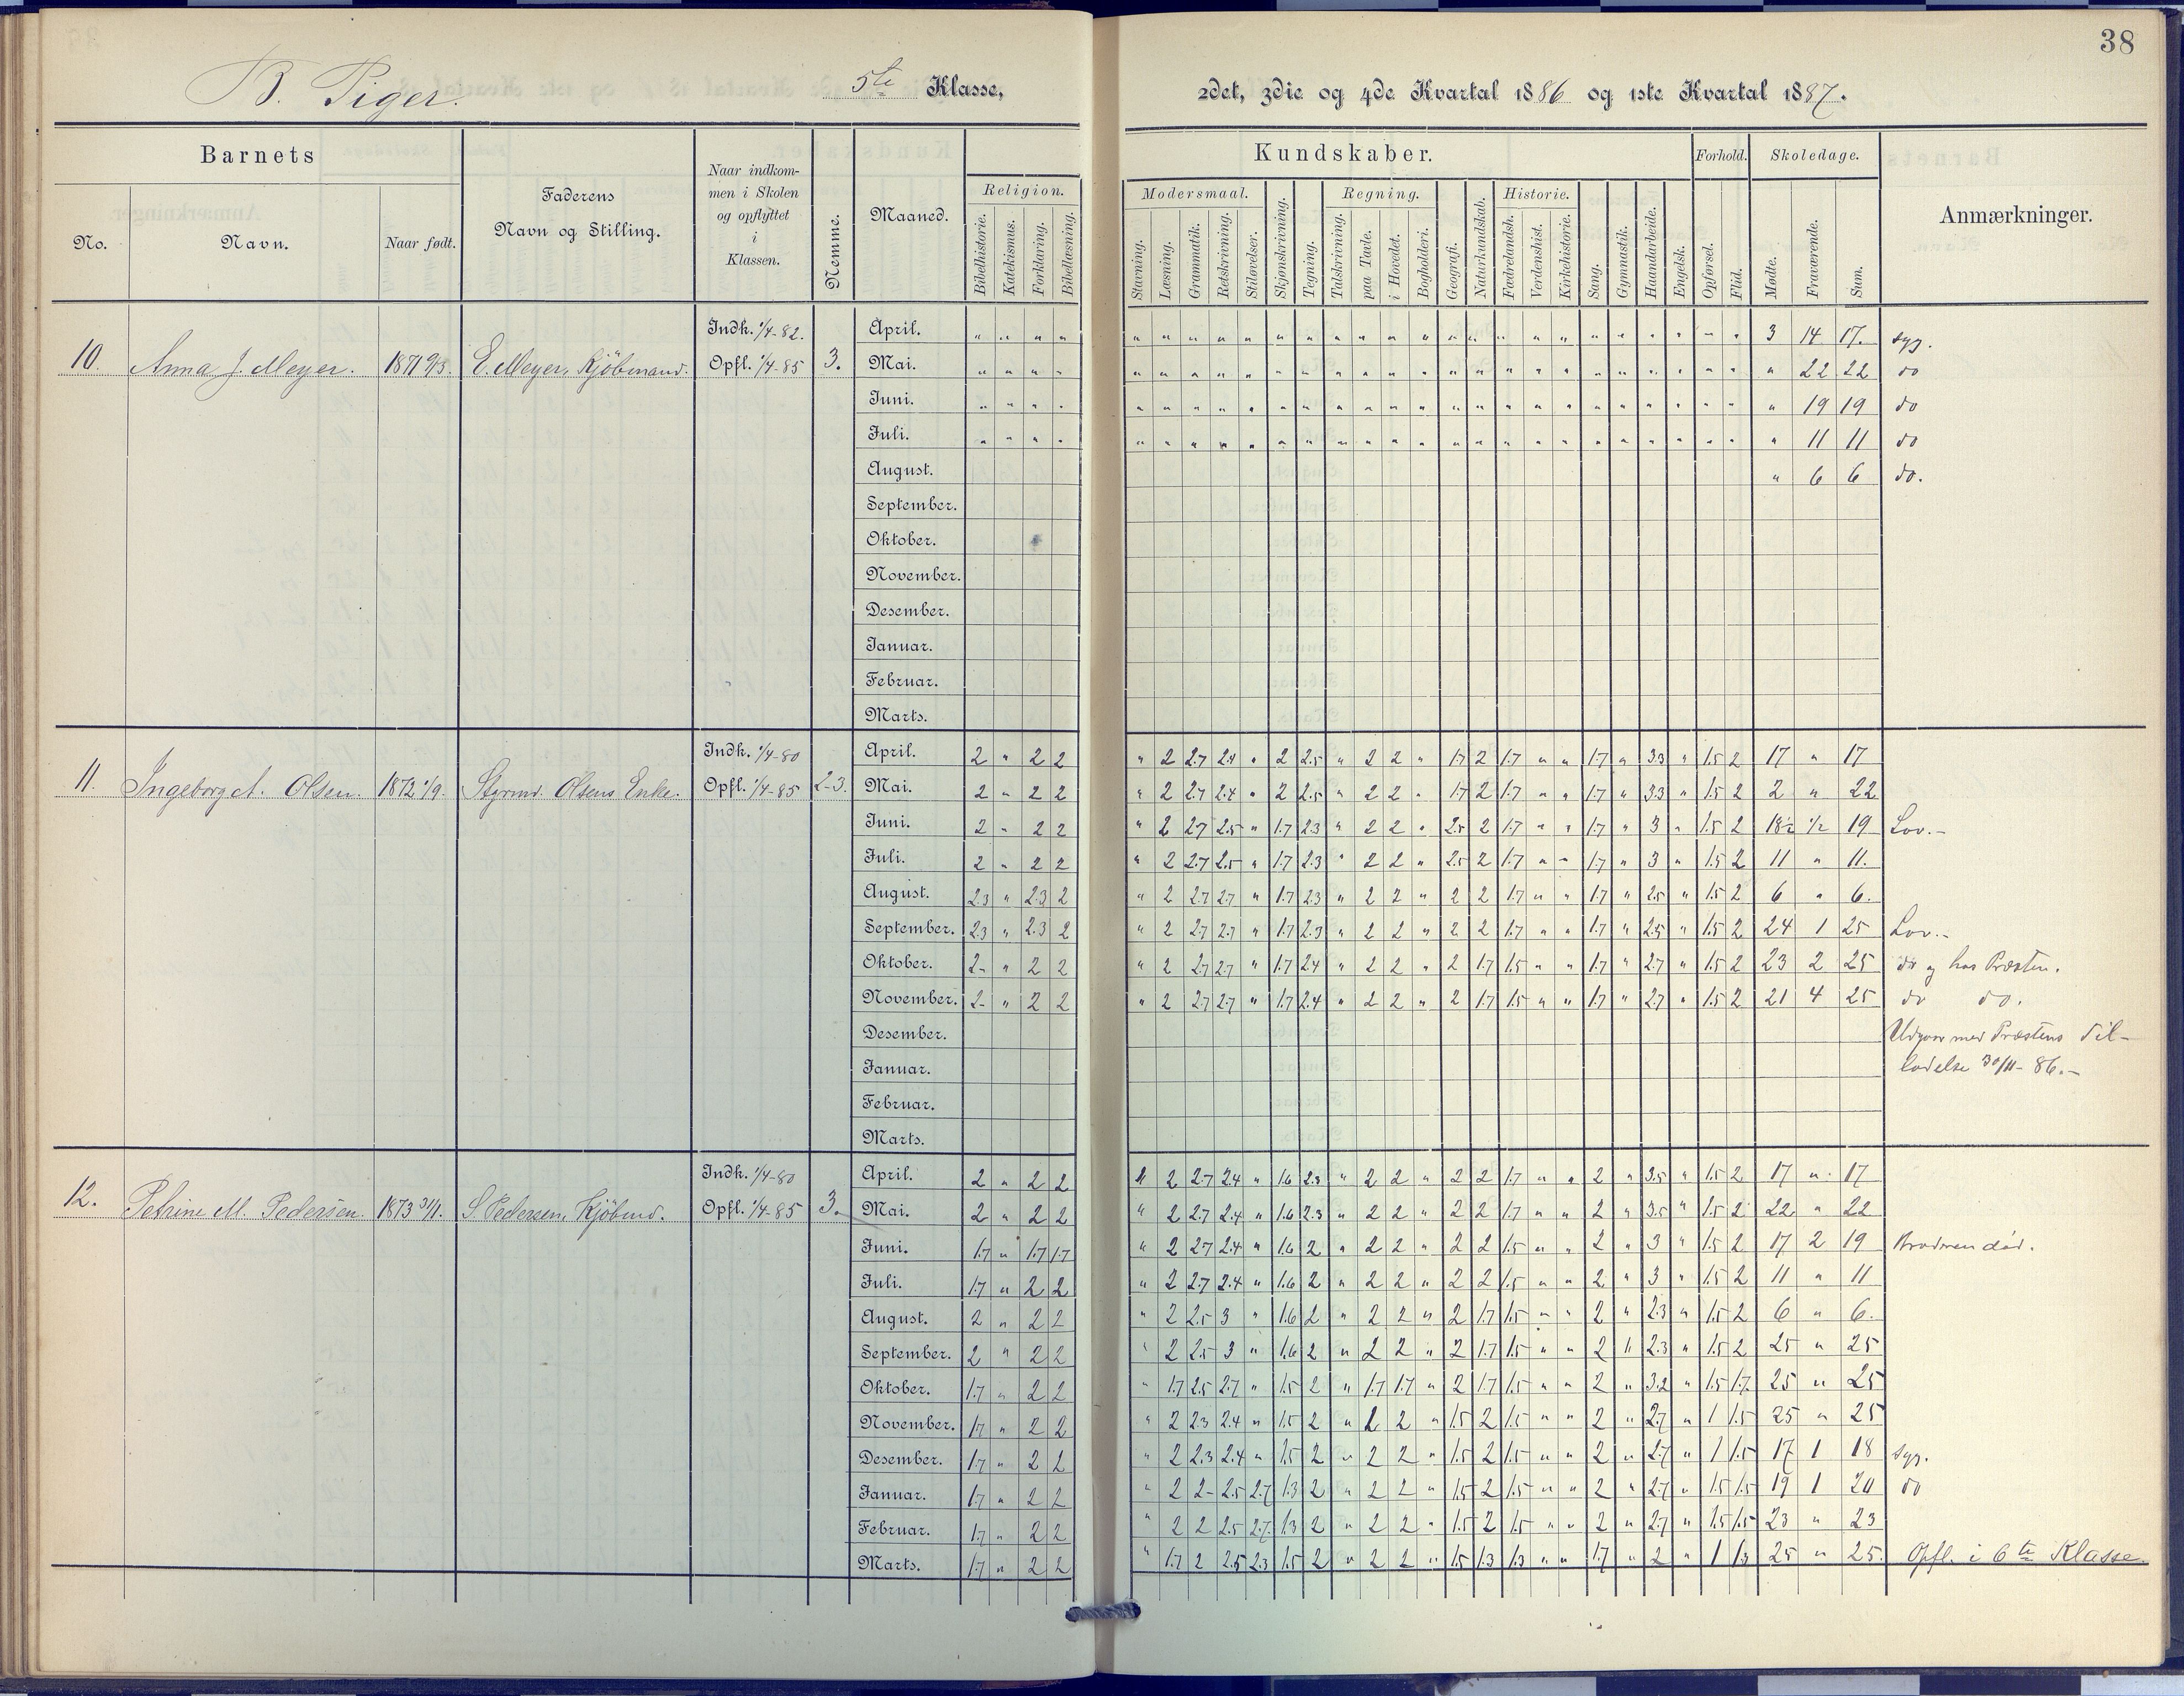 38
B. Piger. 5te Klasse, 2det, 3die og 4de Kvartal 1886 og 1ste Kvartal 1887.
Barnets
No. Navn. Naar født.
Faderens Navn og Stilling.
Naar indkom-
men i Skolen
og opflyttet
i
Klassen.
Nemme.
Maaned.
Kundskaber.
Religion.
Bibelhistorie. Katekismus. Forklaring. Bibellæsning.
Modersmaal.
Stavning. Læsning. Grammatik. Retskrivning. Stiløvelser.
Skjønskrivning. Tegning.
Regning.
Talskrivning. paa Tavle. i Hovedet. Bogholderi.
Geografi. Naturkundskab.
Historie.
Fædrelandsh. Verdenshist. Kirkehistorie.
Sang. Gymnastik. Haandarbeide. Engelsk.
Forhold.
Opførsel. Flid.
Skoledage.
Mødte. Fraværende. Sum.
Anmærkninger.
10. Anna J. Meyer. 1871 9/3. E. Meyer, Kjöbmand. Indk. 1/4-82. Opfl. 1/4-85 3.
April. " " " " " " " " " " " " " " " " " " " " " " " " " " 3 14 17. syg.
Mai. " " " " " " " " " " " " " " " " " " " " " " " " " " " 22 22 do
Juni. " " " " " " " " " " " " " " " " " " " " " " " " " " " 19 19 do
Juli. " " " " " " " " " " " " " " " " " " " " " " " " " " " 11 11 do
August. " 6 6 do.
September.
Oktober.
November.
Desember.
Januar.
Februar.
Marts.
11. Ingeborg A. Olsen. 1872 1/9. Styrmd. Olsens Enke. Indk. 1/4-80 Opfl. 1/4-85 2-3.
April. 2 " 2 2 " 2 2.7 2.4 " 2 2.5 " 2 2 " 1.7 2 1.7 " " 1.7 " 3.3 " 1.5 2 17 " 17
Mai. 2 " 2 2 " 2 2.7 2.4 " 2 2.5 " 2 2 " 1.7 2 1.7 " " 1.7 " 3.3 " 1.5 2 2 " 22
Juni. 2 " 2 2 " 2 2.7 2.5 " 1.7 2.3 " 2 2 " 2.5 2 1.7 " " 1.7 " 3 " 1.5 2 18½ ½ 19 Lov.-
Juli. 2 " 2 2 " 2 2.7 2.5 " 1.7 2.3 " 2 2 " 2.5 2 1.7 " " 1.7 " 3 " 1.5 2 11 " 11.
August. 2.3 " 2.3 2 " 2 2.7 2.7 " 1.7 2.3 " 2 2 " 2 2 1.7 " " 1.7 " 2.5 " 1.5 2 6 " 6.
September. 2.3 " 2.3 2 " 2 2.7 2.7 " 1.7 2.3 " 2 2 " 2 2 1.7 " " 1.7 " 2.5 " 1.5 2 24 1 25 Lov.-
Oktober. 2- " 2 2 " 2 2.7 2.7 " 1.7 2.4 " 2 2 " 2 1.7 1.5 " " 1.7 " 2.7 " 1.5 2 23 2 25 do og hos Præsten.
November. 2- " 2 2 " 2 2.7 2.7 " 1.7 2.4 " 2 2 " 2 1.7 1.5 " " 1.7 " 2.7 " 1.5 2 21 4 25 do do.
Desember. Udgaar med Præstens Til-
Januar. ladelse 30/11-86.-
Februar.
Marts.
12. Petrine M. Pedersen. 1873 31/1. S. Pedersen, Kjöbmd. Indk. 1/4-80 Opfl. 1/4-85 3.
April. 2 " 2 2 " 2 2.7 2.4 " 1.6 2.3 " 2 2 " 2 2 1.7 " " 2 " 3.5 " 1.5 2 17 " 17
Mai. 2 " 2 2 " 2 2.7 2.4 " 1.6 2.3 " 2 2 " 2 2 1.7 " " 2 " 3.5 " 1.5 2 22 " 22
Juni. 1.7 " 1.7 1.7 " 2 2.7 2.4 " 1.6 2 " 2 2 " 2 2 1.5 " " 2 " 3 " 1.5 2 17 2 19 Broderen död.
Juli. 1.7 " 2 2 " 2 2.7 2.4 " 1.6 2 " 2 2 " 2 2 1.5 " " 2 " 3 " 1.5 2 11 " 11
August. 2 " 2 2 " 2 2.5 3 " 1.6 2 " 2 2 " 2 1.7 1.5 " " 2 " 2.3 " 1.5 2 6 " 6.
September. 2 " 2 2 " 2 2.5 3 " 1.6 2 " 2 2 " 2 1.7 1.5 " " 2 " 2.3 " 1.5 2 25 " 25
Oktober. 1.7 " 2 2 " 1.7 2.5 2.7 " 1.5 2 " 1.7 1.7 " 2 1.7 1.5 " " 2 " 3.2 " 1.5 1.7 25 " 25
November. 1.7 " 2 2 " 2 2.3 2.4 " 1.5 2 " 2 2 " 1.5 2 1.5 " " 2 " 2.7 " 1 1.5 25 " 25
Desember. 1.7 " 2 2 " 2 2.3 2.4 " 1.5 2 " 2 2 " 1.5 2 1.5 " " 2 " 2.7 " 1 1.5 17 1 18 syg.
Januar. 1.7 " 2 2 " 2 2- 2.5 2.7 1.3 2 " 2 2 " 1.5 2 1.5 " " 2 " 2.7 " 1.5 1.5 19 1 20 do
Februar. 1.7 " 2 2 " 2 2 2.5 2.7 1.3 2 " 2 2 " 1.5 2 1.5 " " 2 " 2.7 " 1.5 1.5 23 " 23
Marts. 1.7 " 2 2 " 1.7 2 2.5 2.3 1.5 2 " 2 2 " 1.5 1.3 1.3 " " 1.7 " 2 " 1 1.3 25 " 25. Opfl. i 6te Klasse.